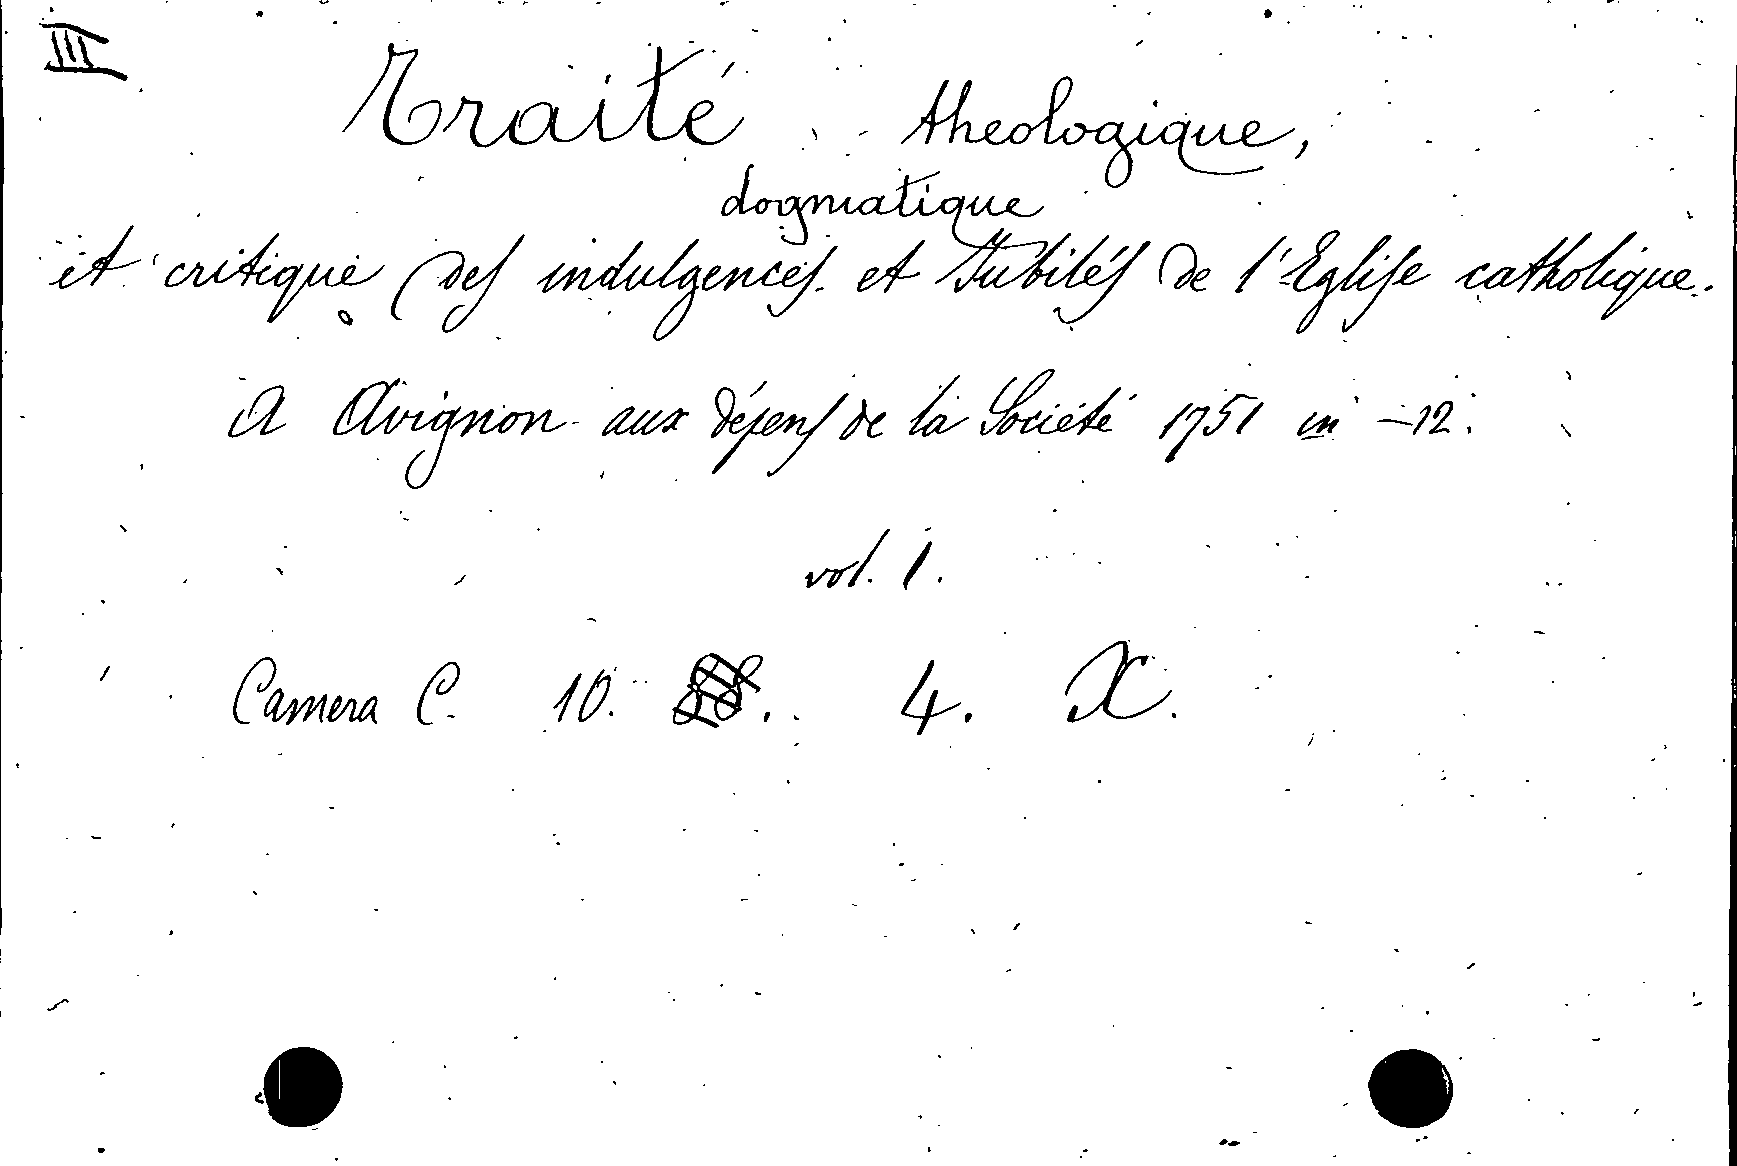 III
Traité theologique,
dogmatique
et critique des indulgences et Jubilés de l'Eglise catholique.
A Avignon aux dépens de la Société 1751 in-12.
vol. 1.
Camera C. 10. 4. X.